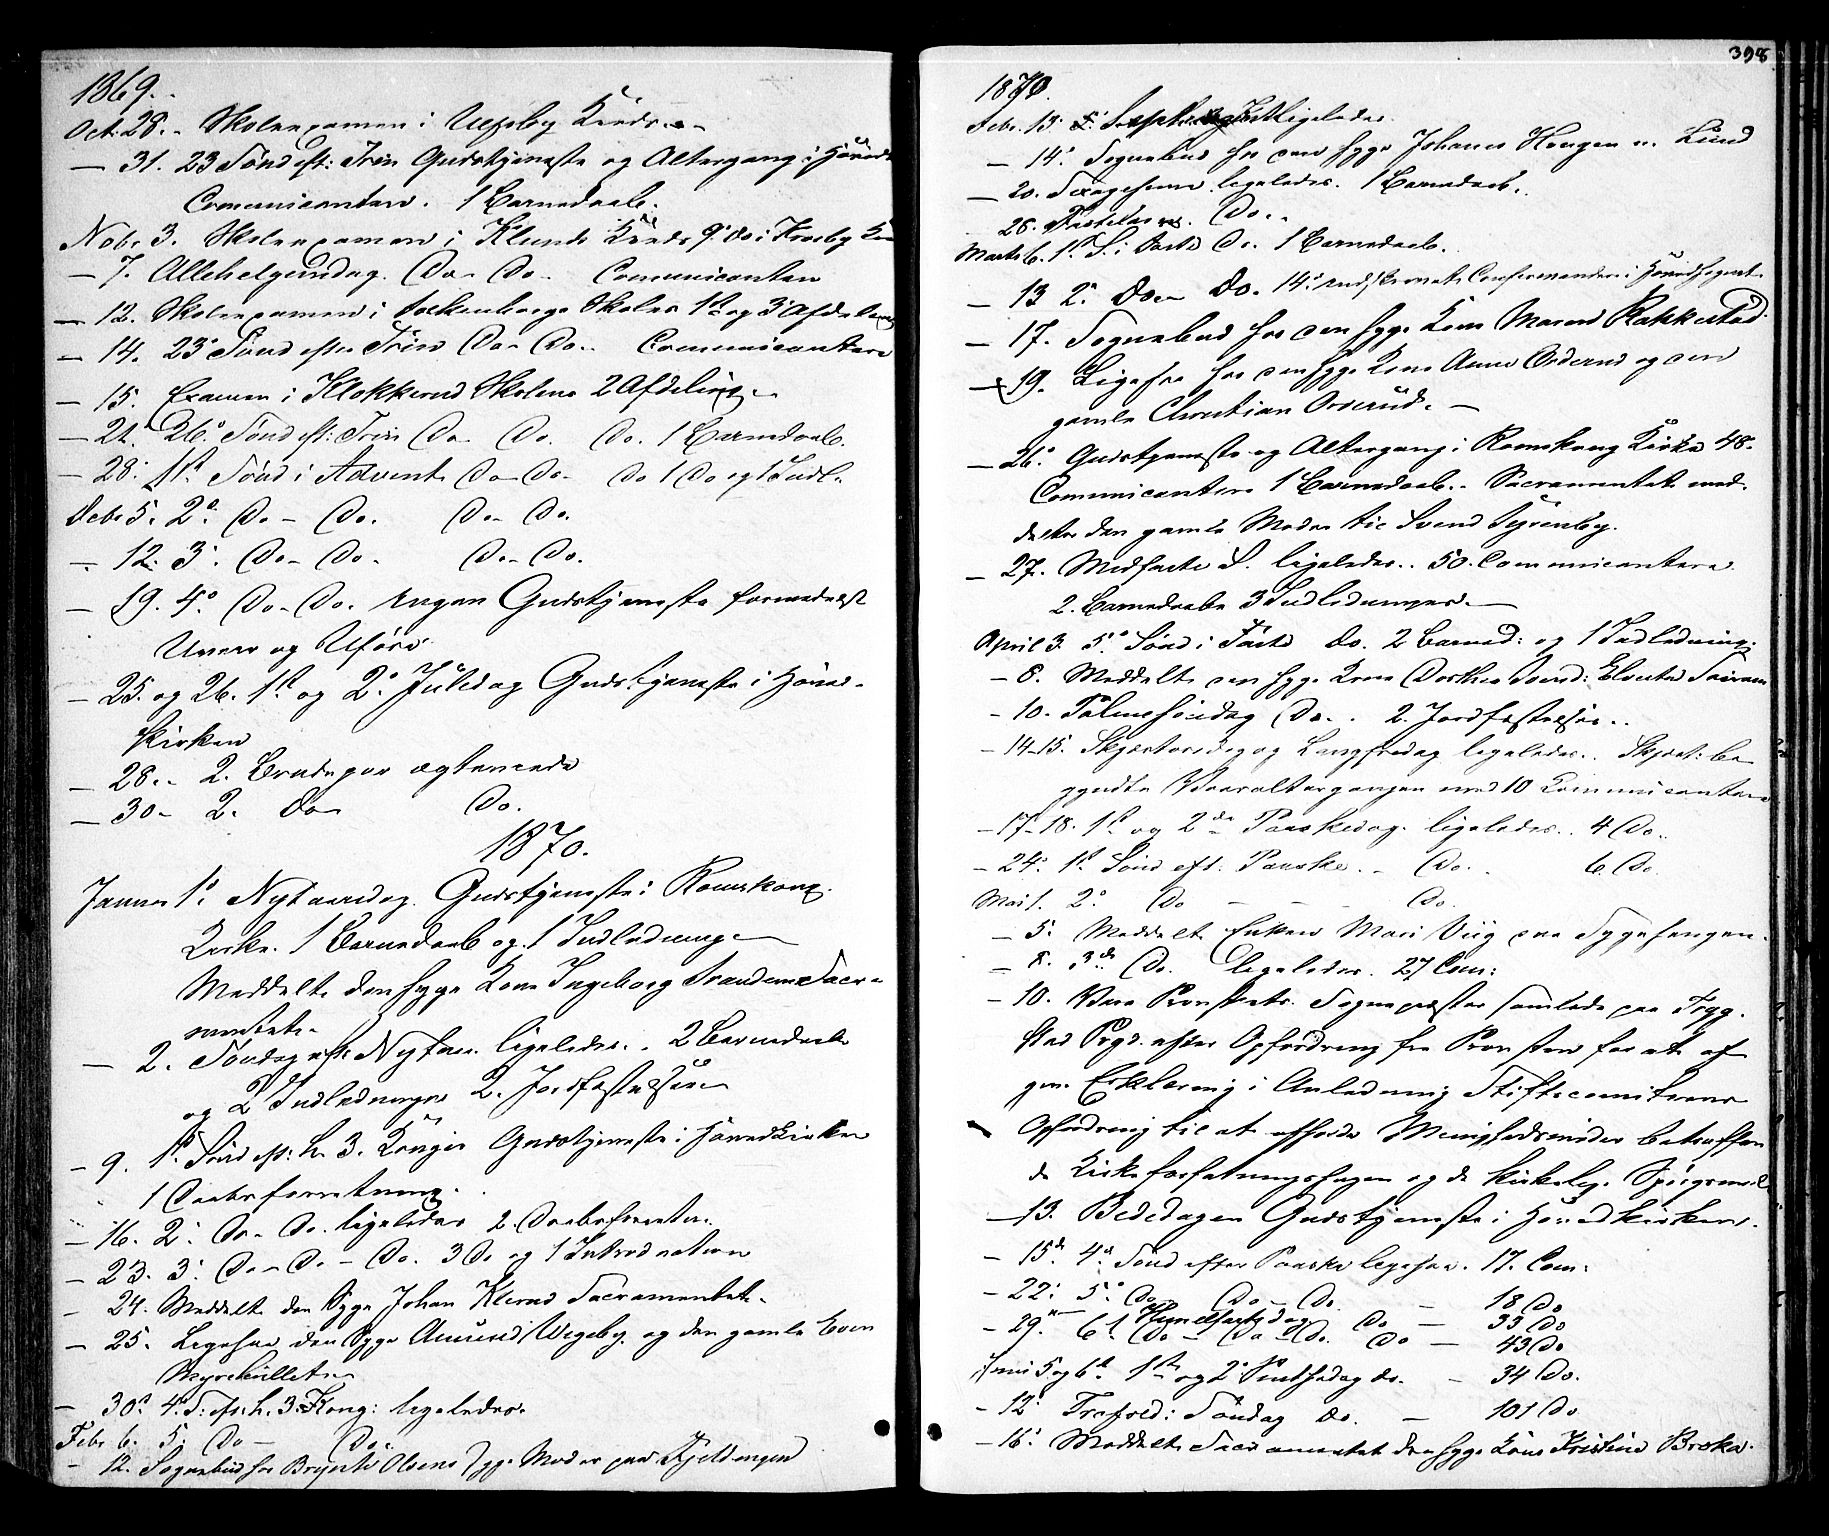 1869.
Oct. 28. - Skoleexamen i Ulfsby Kreds. -
— 31. 23 Sönd eft: Trin Gudstjeneste og Altergang i Hövid
Comunicantere. 1 Barnedaab.
Nobr 3. Skoleexamen i Klunds Kreds 9. do i Krosby Kre
— 7. Allehelgensdag. Do - Do - Comunicanter
— 12. Skoleexamen i Skolens 1ste og 3die Afdeling
— 14. 25de Sönd efter Trin Do - Do - Communicantere
— 15. Examen i Klokkerud Skolens 2 Afdeling -
— 21. 26de Sönd eft: Trin Do - Do. Do. 1 Barnedaab.
— 28. 1st Sönd i Advent Do - Do - Do 1 Do og 1 Indl.
Decbr 5. 2d. Do - Do. Do - Do.
— 12. 3. Do - Do - Do - Do.
— 19. 4d. Do - Do. Ingen Gudstjeneste formedelst
Uveir og Uföre.
— 25. og 26. 1st og 2d. Juledag Gudstjeneste i Höved-
kirken
— 28. - 2. Brudepar ægteviede
— 30 - 2. Do Do.
1870.
Januar 1. Nytaarsdag. Gudstjeneste i Römskoug
Kirke. 1 Barnedaab og 1 Indledning —
Meddelt den syge Kone Ingeborg Sacra-
mentet. -
— 2. Söndag eft: Nytaar ligeledes. . 2 Barnedaab
og 2 Indledninger 2. Jordfæstelser
— 9. 1st Sönd eft: h. 3. Konger Gudstjeneste i Hövedkirken
1 Daabsforretning.
— 16. 2. Do - Do. ligeledes 2. Daabsforretn:
— 23. 3. Do - Do - Do. 3 Do og 1 Introduction
— 24. Meddelt den Syge Johan Klerud Sacramentet.
— 25. Ligesaa den Syge Amund Wegeby og den gamle Even

— 30. 4d S: eft: h. 3. Kong: ligeledes.
Febr 6. 5. Do — Do
— 12. Sognebud for Brynte Olsens syge Moder paa Kjeldengen
398
1870.
Febr. 13. ligeledes.
— 14. Sognebud hos den syge Johannes Haugen u. Lund
— 20. Sexagesima ligeledes. 1 Barnedaab.
28. Fastelavns. Do. -
Marts 6. 1st S. i Faste Do. 1 Barnedaab.
— 13 2. Do — Do. 14. indskrevet Confirmander i Hovedsognet
— 17. Sognebud hos den syge Kone Maren Rakkestad.
— 19. Ligesaa hos den syge Kone Anne Orderud og den
gamle Christian Orderud. —
— 26. Gudstjeneste og Altergang i Römskoug Kirke 48.
Communicantere 1 Barnedaab. - Sacramentet med-
deltes den gamle Moder til Svend Tyrenby.
— 27. Midfaste S. ligeledes. . 50. Communicantere
2. Barnedaabe 3 Indledninger. —
April 3. 5. Sönd i Faste do. 2 Barned: og 1 Indledning.
— 8. Meddelt den syge Kone Dorthea Svend:
— 10. Palmesöndag Do. . 2. Jordfæstelser. .
— 14-15. Skjærtorsdag og Langfredag ligeledes. . Skjært: be-
gyndte Vaaraltergangen med 10 Communicantere
— 17-18. 1st og 2den Paaskedag. ligeledes. . 4 Do.
— 24. 1st Sönd eft: Paaske. - Do. 6. Do.
Mai 1. 2. Do — — — Do.
— 5. Meddelt Enken Mari Viig paa Sygesengen.
— 8. 3de Do. ligeledes. 27 Com:
— 10. Vare Provstiets Sognepræster samlede paa Tryg-
stad Prgd. efter Opfordring fra Provsten for at af-
give Erklæring i Anledning Stiftscomiteens
Opfordring til at afholde Menighedsmöder betræffen
de Kirkeforfatningssagen og de kirkelige Spörgsmaal
— 13. Bededagen Gudstjeneste i Hövedkirken.
— 15de 4d. Sönd efter Paaske ligesaa. 17. Com:
— 22. 5. Do Do - Do. — 18 Do
Himmelfartsdag Do — 33 Do
— 29. 6te Do - Do - Do. Do — 43 Do
Juni 5 og 6te 1ste og 2. Pintsedag do. — 34 Do.
— 12. Trefold: Söndag Do. — 101 Do
— 16. Meddelt Sacramentet den syge Kone Kristine Broka.